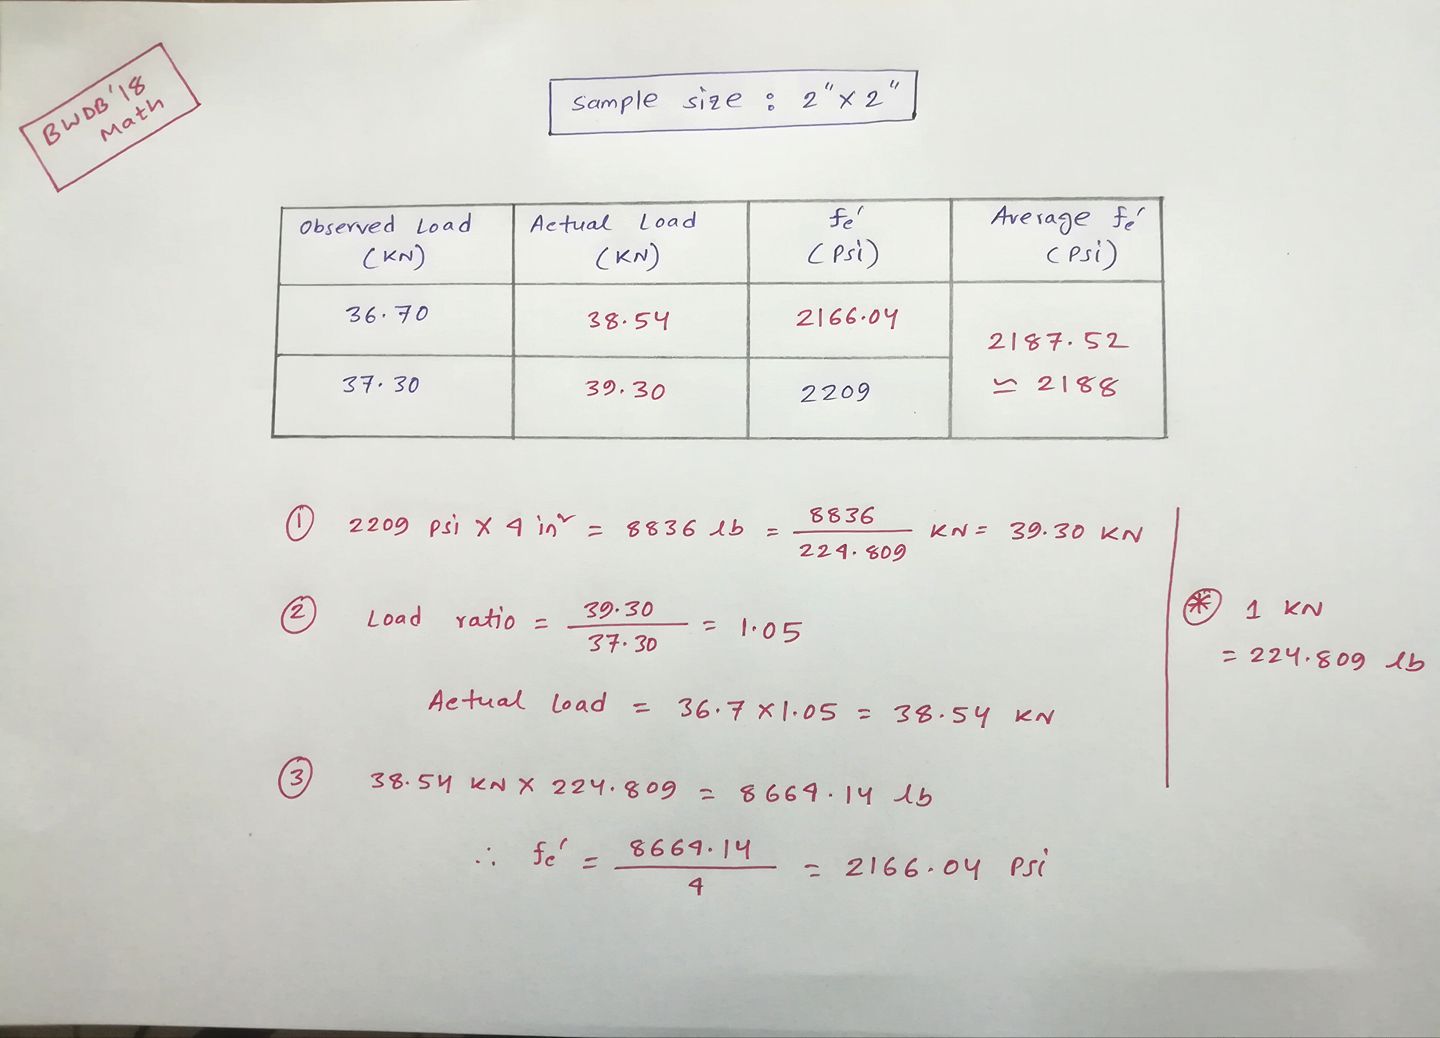 BWDB'18
Math
Sample size : 2" x 2"
Observed Load (KN) Actual Load (KN) fc' (Psi) Average fc' (Psi)
36.70 38.54 2166.04 2187.52
37.30 39.30 2209 ≃ 2188
① 2209 psi x 4 in² = 8836 lb = 8836/224.809 KN = 39.30 KN
② Load ratio = 39.30/37.30 = 1.05
Actual load = 36.7 x 1.05 = 38.54 KN
③ 38.54 KN x 224.809 = 8664.14 lb
∴ fc' = 8664.14/4 = 2166.04 Psi
⊛ 1 KN
= 224.809 lb